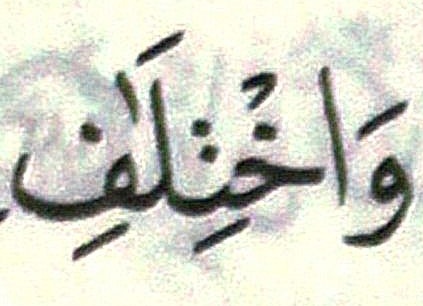 وَاخْتِلَٰفِ